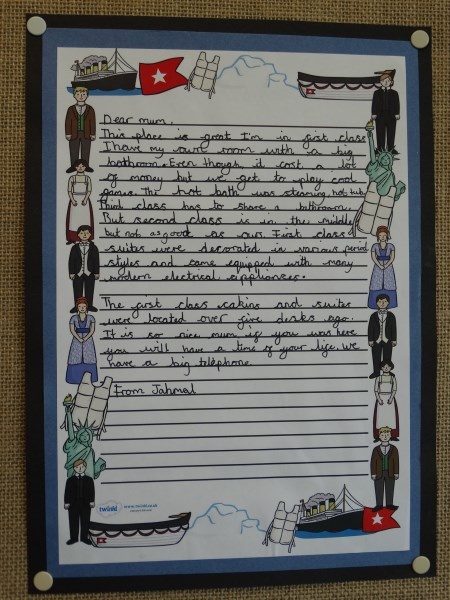 Dear mum,
This place is great I'm in first class
I have my own room with a big
bathroom. Even though it cost a lot
of money but we get to play cool
games. The hot bath was steaming, hot tub
Third class has to share a bathroom.
But second class is in the middle
but not as good as our First class
suites were decorated in various period
styles and came equipped with many
modern electrical appliances.
The first class cabins and suites
were located over five desks ago.
It is so nice mum if you was here
you will have a time of your life. We
have a big telephone.
From Jahmal
twinkl www.twinkl.co.uk